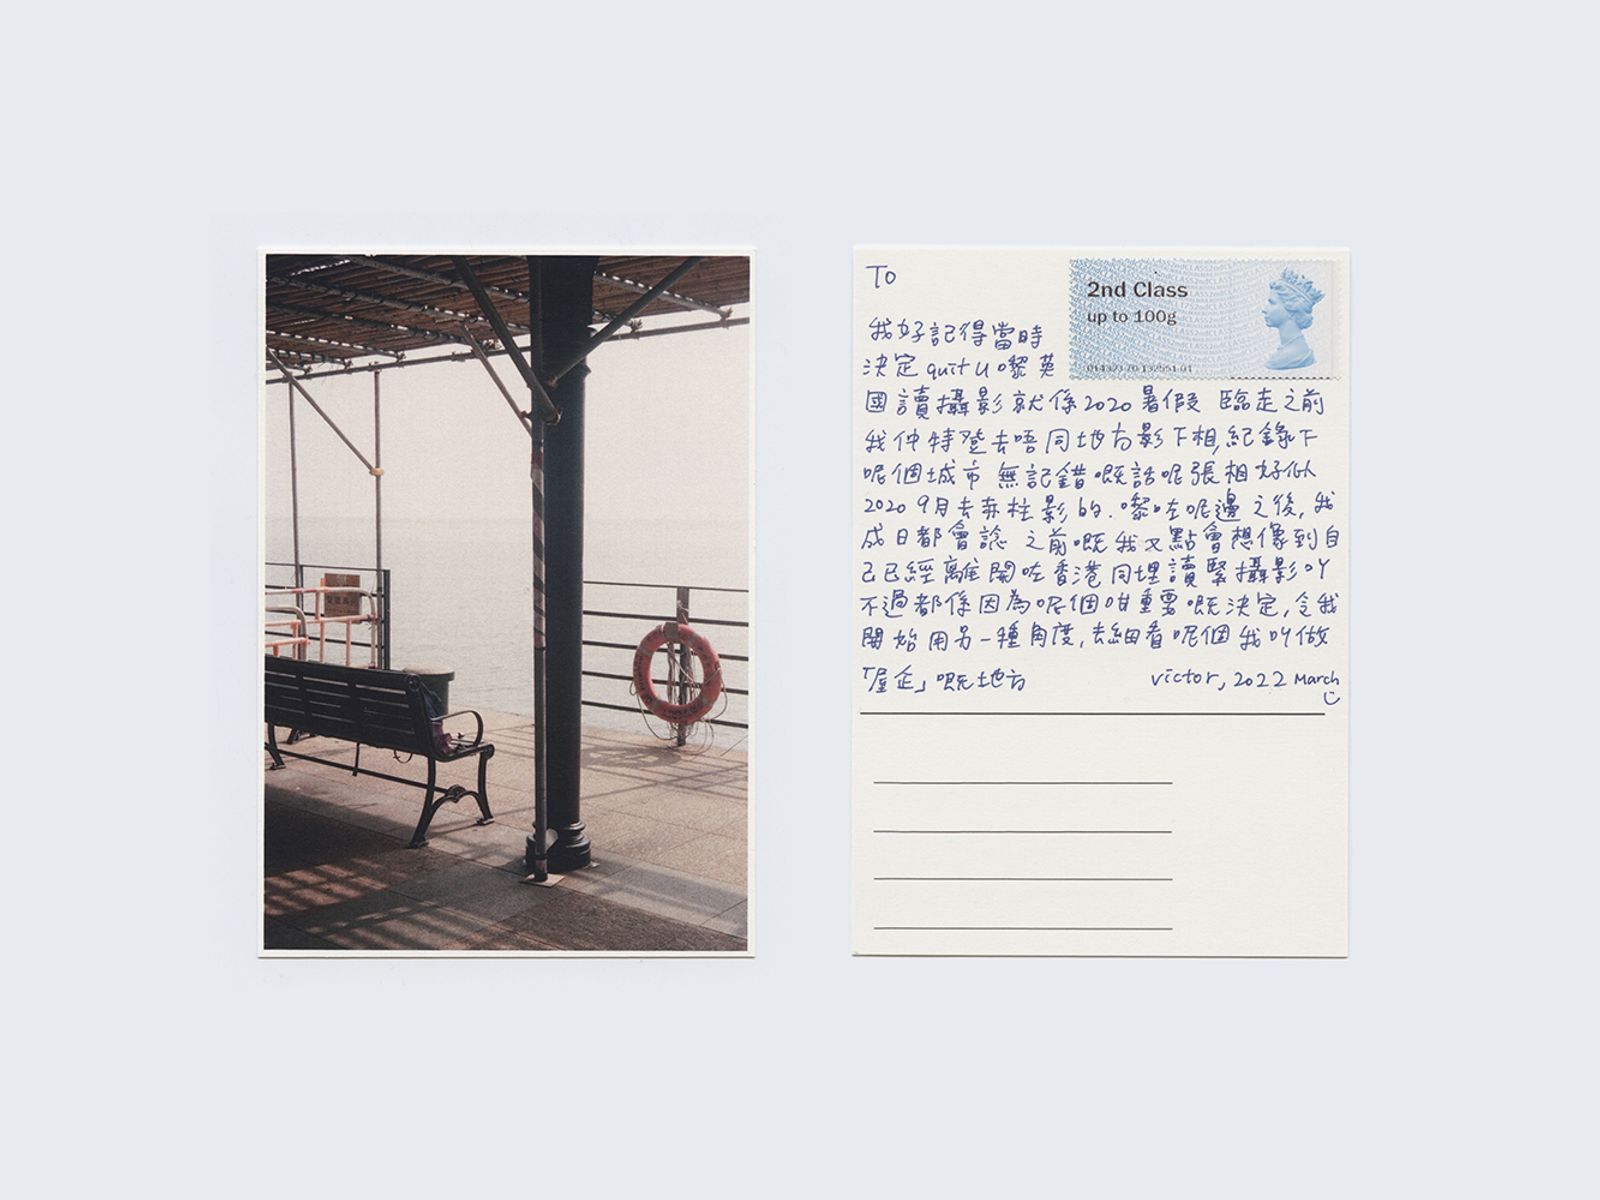 To
2nd Class
up to 100g
我好記得當時
決定 quit U 嚟英
國讀攝影就係2020暑假 臨走之前
我仲特登去唔同地方影下相,紀錄下
呢個城市 無記錯嘅話呢張相好似
2020 9月去赤柱影的. 嚟咗呢邊之後, 我
成日都會諗 之前嘅我又點會想像到自
己已經離開咗香港同埋讀緊攝影吖
不過都係因為呢個咁重要嘅決定,令我
開始用另一種角度,去細看呢個我叫做
「屋企」嘅地方
victor, 2022 March